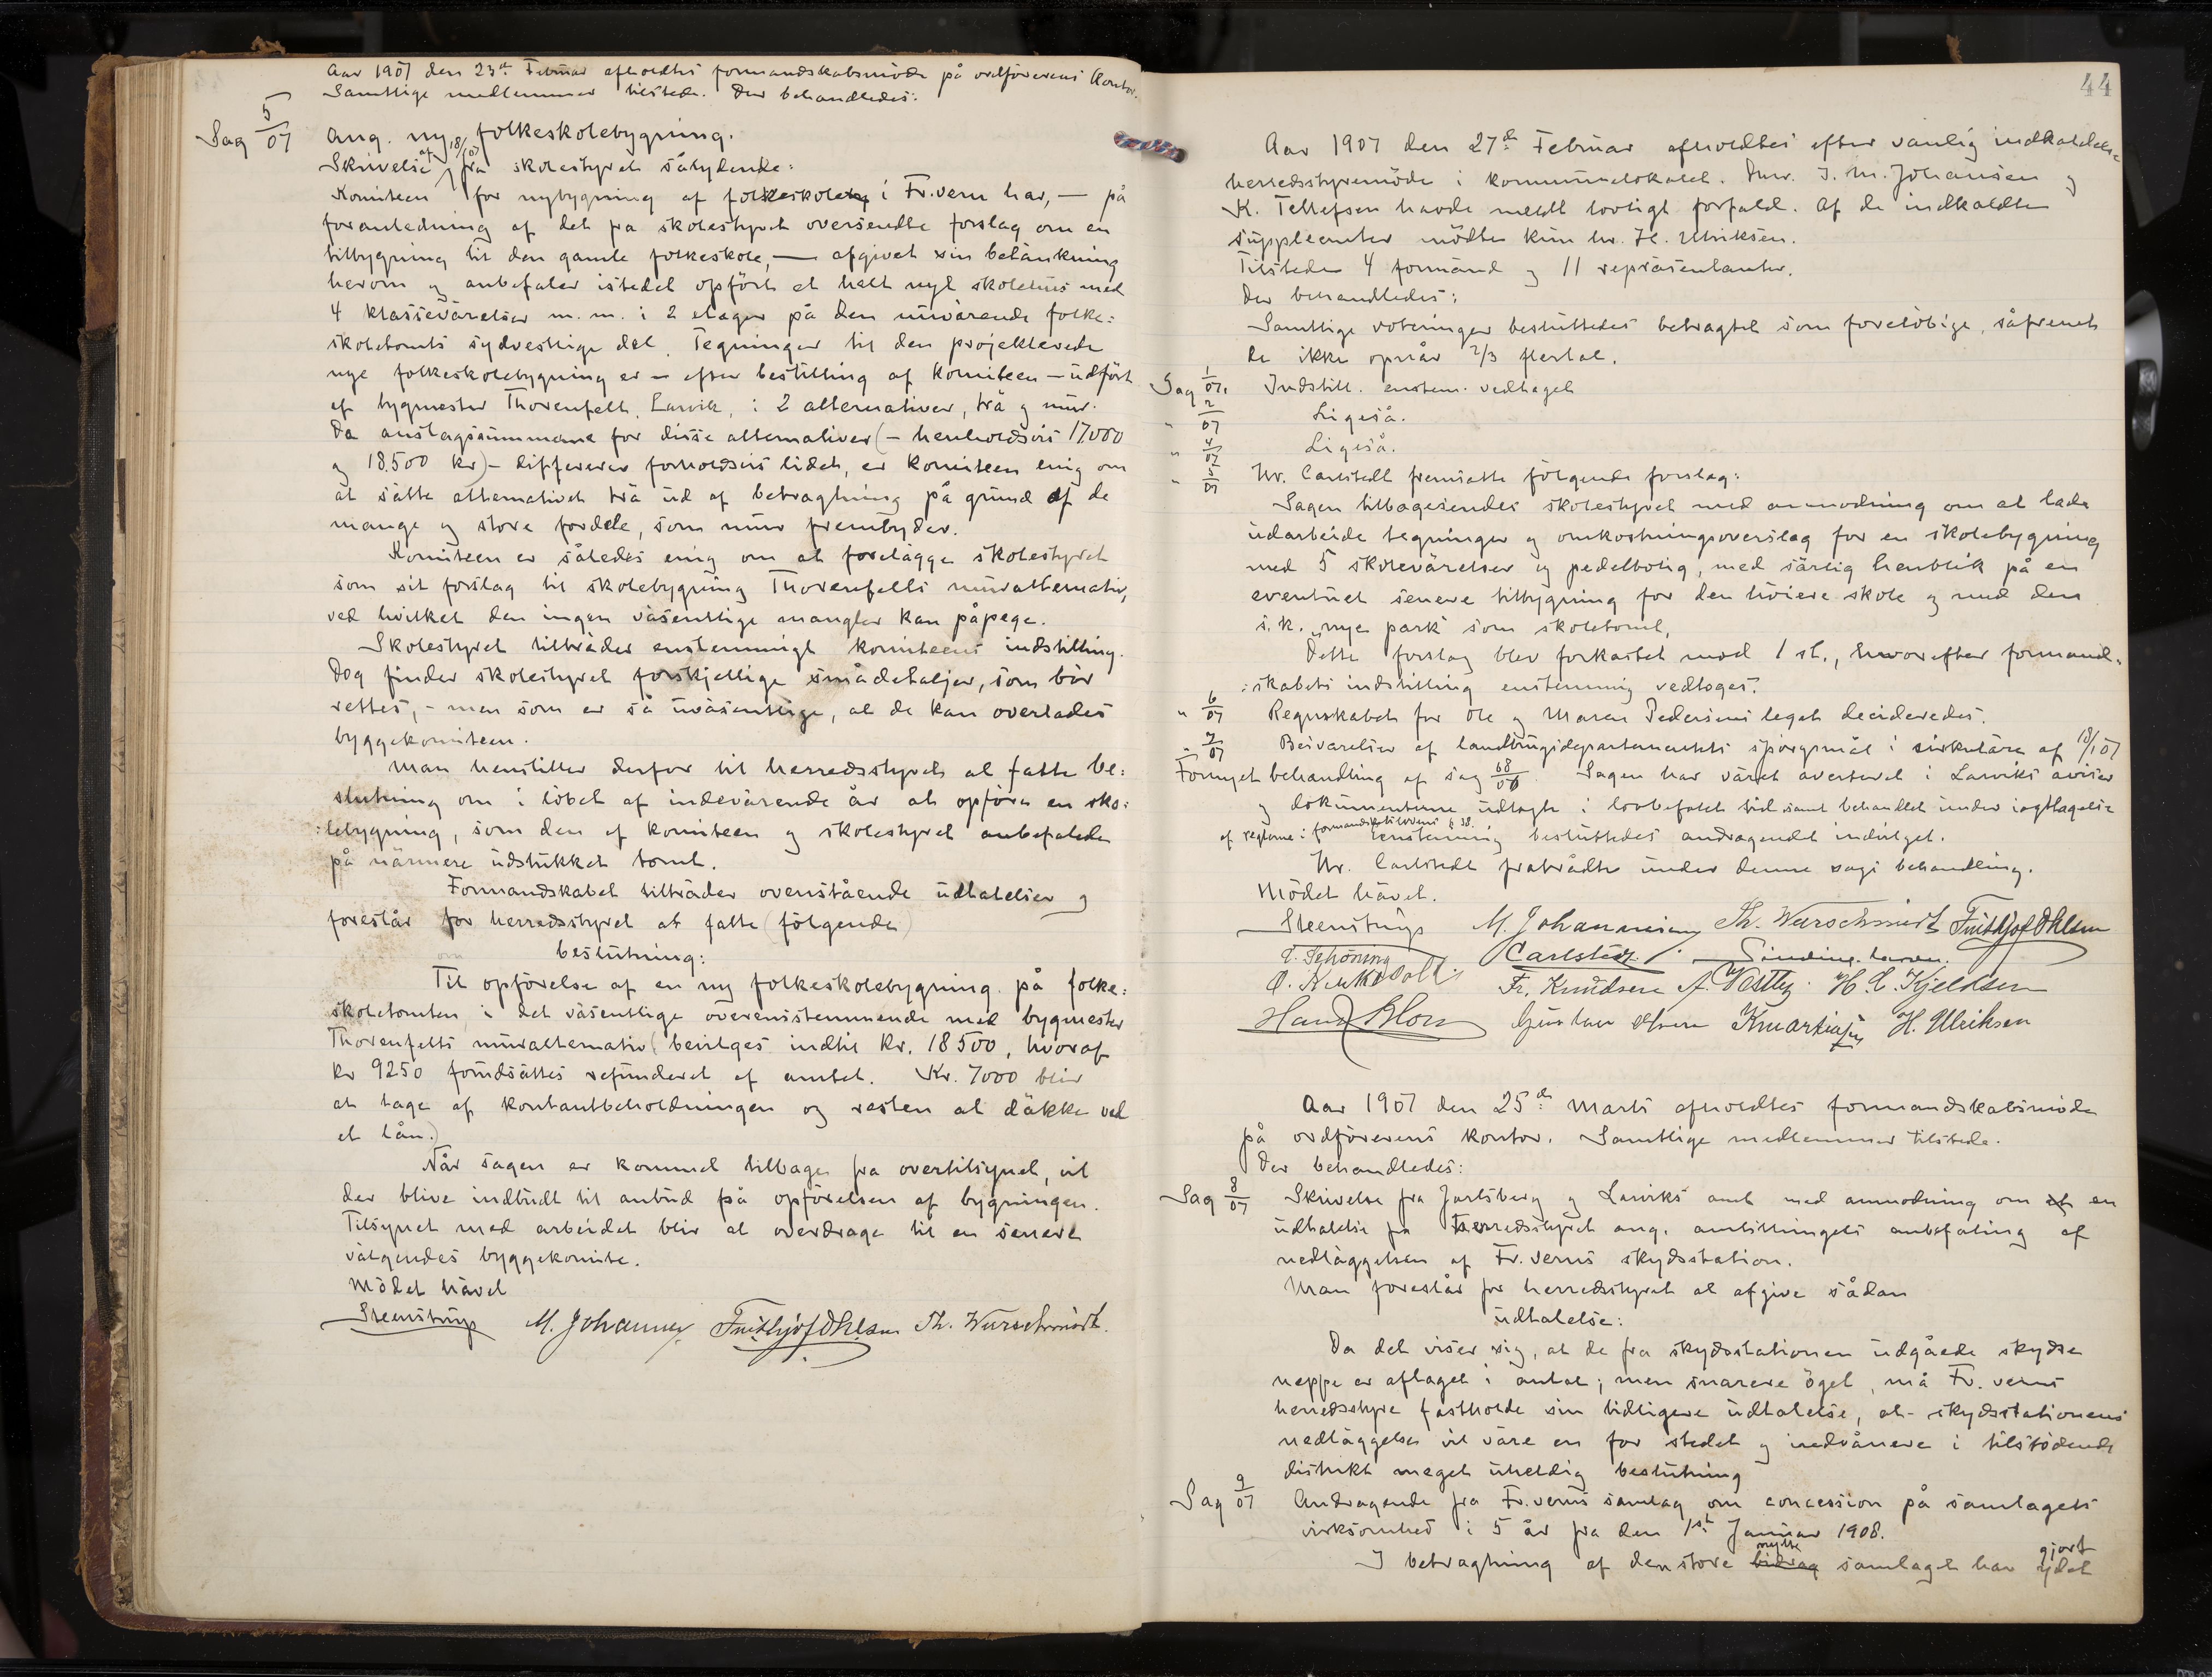 Aar 1907 den 23de Februar afholdtes formandskabsmöde på ordförerens Kontor.
Samtlige medlemmer tilstede. Der behandledes:
Sag 5/07 Ang. ny folkeskolebygning.
Skrivelse af 18/1 07 fra skolestyret sålydende:
Komiteen for nybygning af folkeskole i Fr.vern har, — på
foranledning af det fra skolestyret oversendte forslag om en
tilbygning til den gamle folkeskole, — afgivet sin betänkning
herom og anbefaler istedet opfört et helt nyt skolehus med
4 klassevärelser m.m. i 2 etager på den nuvärende folke=
skoletomts sydvestlige del. Tegninger til den projekterede
nye folkeskolebygning er — efter bestilling af komiteen — udfört
af bygmester Thorenfeldt, Larvik, i 2 alternativer, trä og mur.
Da anslagssummene for disse alternativer (— henholdsvis 17000
og 18.500 kr) — differerer forholdsvis lidet, er komiteen enig om
at sätte alternativet trä ud af betragtning på grund af de
mange og store fordele, som mur frembyder.
Komiteen er således enig om at forelägge skolestyret
som sit forslag til skolebygning Thorenfelts muralternativ,
ved hvilket den ingen väsentlige mangler kan påpege.
Skolestyret tilträder enstemmigt komiteens indstilling.
Dog finder skolestyret forskjellige smådetaljer, som bör
rettes, - men som er så uväsentlige, at de kan overlades
byggekomiteen.
Man henstiller derfor til herredsstyret at fatte be=
slutning om i löbet af indevärende år at opföre en sko=
=lebygning, som den af komiteen og skolestyret anbefalede
på närmere udstukket tomt.
Formandskabet tilträder ovenstående udtalelser og
foreslår for herredsstyret at fatte (fölgende)
beslutning:
Til opförelse af en ny folkeskolebygning på folke=
skoletomten i det väsentlige overensstemmende med bygmester
Thorenfelts muralternativ (bevilges indtil kr. 18500, hvoraf
kr 9250 forudsättes refunderet af amtet. Kr. 7000 blir
at tage af kontantbeholdningen og resten at däkke ved
et lån.)
Når sagen er kommet tilbage fra overtilsynet, vil
der blive indbudt til anbud på opförelsen af bygningen.
Tilsynet med arbeidet blir at overdrage til en senere
välgendes byggekomite.
Mödet hävet
Steenstrup M. Johannesen Frithjof Ohlsen Th. Wurschmidt.
44
Aar 1907 den 27de Februar afholdtes efter vanlig indkaldelse
herredsstyremöde i kommunelokalet. Hrr. J. M. Johansen og
K. Tellefsen havde meldt lovligt forfald. Af de indkaldte
suppleanter mödte kun hr. H. Ulriksen.
Tilstede 4 formänd og 11 repräsentanter.
Der behandledes:
Samtlige voteringer besluttedes betragtet som forelöbige, såfremt
de ikke opnår 2/3 flertal.
Sag 1/07. Indstill. enstem. vedtaget
" 2/07 Ligeså.
" 4/07 Ligeså.
" 5/07 Hr. Carlstedt fremsatte fölgende forslag:
Sagen tilbagesendes skolestyret med anmodning om at lade
udarbeide tegninger og omkostningsoverslag for en skolebygning
med 5 skolevärelser og pedelbolig, med särlig henblik på en
eventuel senere tilbygning for den höiere skole og med den
s.k. nye park som skoletomt.
Dette forslag blev forkastet mod 1 st., hvorefter formand=
=skabets indstilling enstemmig vedtoges.
" 6/07 Regnskabet for Ole og Maren Pedersens legat decideredes.
" 7/07 Besvarelser af landbrugsdepartementets spörgsmål i cirkuläre af 18/1 07
Fornyet behandling af sag 68/06. Sagen har väret averteret i Larviks aviser
og dokumenterne udlagte i lovbefalet tid samt behandlet under iagttagelse
af reglerne i formandskabslovens § 38. Enstemmig besluttedes andragendet indvilget.
Hr. Carlstedt fratrådte under denne sags behandling.
Mödet hävet.
Steenstrup M. Johannesen Th. Wurschmidt Frithjof Ohlsen
E. Schöning Carlstedt Sinding-Larsen.
Fr. Knudsen A. Vestby. H. C. Kjeldsen
Hans Blom Gustav Olsen K Martinsen H. Ulriksen
Aar 1907 den 25de Marts afholdtes formandskabsmöde
på ordförerens kontor. Samtlige medlemmer tilstede.
Der behandledes:
Sag 8/07 Skrivelse fra Jarlsberg og Larviks amt med anmodning om at en
udtalelse fra herredsstyret ang. amtstingets anbefaling af
nedläggelsen af Fr.verns skydsstation.
Man foreslår for herredsstyret at afgive sådan
udtalelse:
Da det viser sig, at de fra skydsstationen udgåede skydse
neppe er aftaget i antal; men snarere öget, må Fr. verns
herredsstyre fastholde sin tidligere udtalelse, at skydsstationens
nedläggelse vil väre en for stedet og indvånere i tilstödende
distrikt meget uheldig beslutning
Sag 9/07 Andragende fra Fr.verns samlag om concession på samlagets
virksomhed i 5 år fra den 1st Januar 1908.
I betragtning af den store bidrag nytte samlaget har ydet gjort